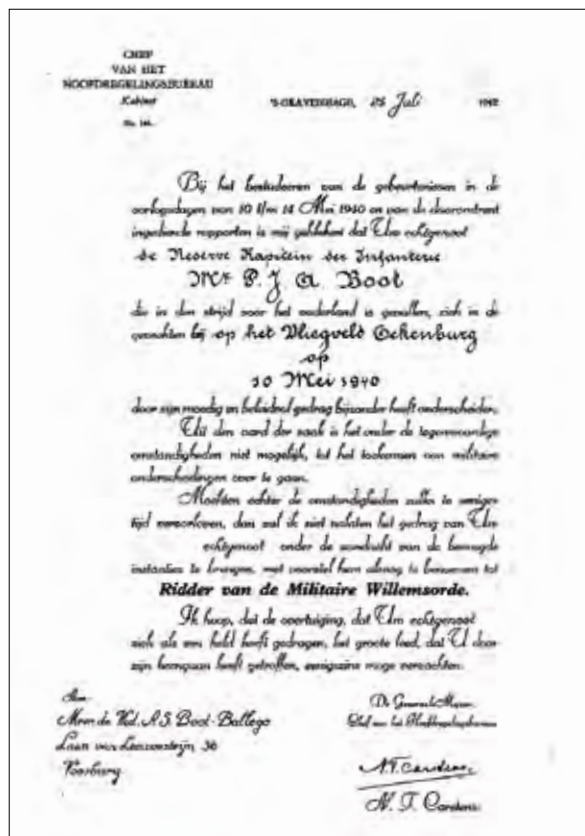 CHEF
VAN HET
HOOFDREGELINGSBUREAU
Kabinet
No.
'S-GRAVENHAGE, 25 Juli 1942
Bij het bestudeeren van de gebeurtenissen in de
oorlogsdagen van 10 t/m 14 Mei 1940 en van de daaromtrent
ingediende rapporten is mij gebleken dat Uw echtgenoot
de Reserve Kapitein der Infanterie
Mr P. J. A. Boot
die in den strijd voor het vaderland is gevallen, zich in de
gevechten bij op het Vliegveld Ockenburg
op
10 Mei 1940
door zijn moedig en beleidvol gedrag bijzonder heeft onderscheiden.
Uit den aard der zaak is het onder de tegenwoordige
omstandigheden niet mogelijk, tot het toekennen van militaire
onderscheidingen over te gaan.
Mochten echter de omstandigheden zulks te eeniger
tijd veroorloven, dan zal ik niet nalaten het gedrag van Uw
echtgenoot onder de aandacht van de bevoegde
instanties te brengen, met voorstel hem alsnog te benoemen tot
Ridder van de Militaire Willemsorde.
Ik hoop, dat de overtuiging, dat Uw echtgenoot
zich als een held heeft gedragen, het groote leed, dat U door
zijn heengaan heeft getroffen, eenigszins moge verzachten.
Aan
Mevr. de Wed. A.S. Boot-Ballego
Laan van Leeuwesteijn 36
Voorburg
De Generaal-Majoor
Chef van het Hoofdregelingsbureau
N.T. Carstens
N. T. Carstens